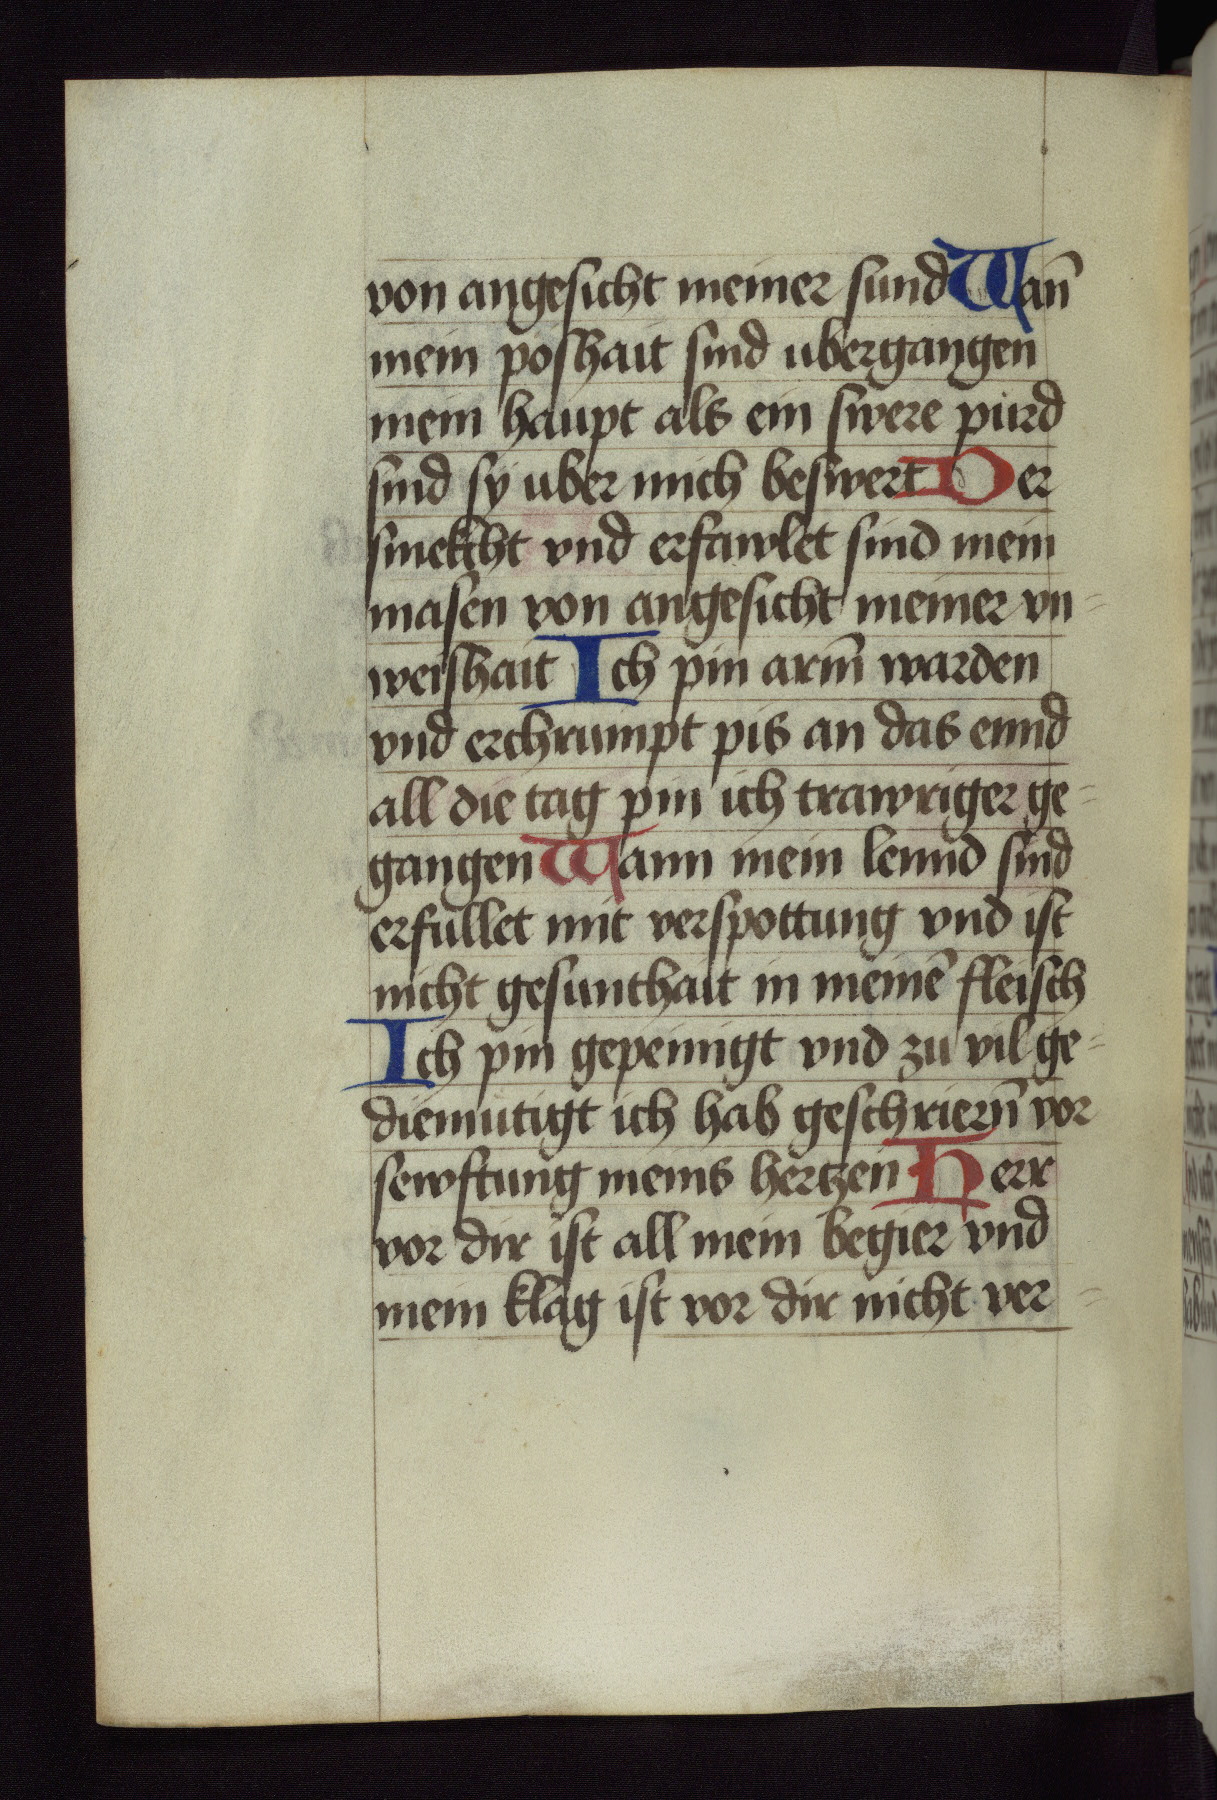 von angesicht meiner sund Wan̄
mein poshait sind ubergangen
mein haupt als ein swere purd
sind sy uber mich beswert Der
smekcht vnd erfawlet sind mein
masen von angesicht meiner vn=
weishait Ich pin arm̄ warden
vnd erchrumpt pis an das ennd
all die tag pin ich trawriger ge=
gangen Wann mein lennd sind
erfullet mit verspottung vnd ist
nicht gesunthait in meinē fleisch
Ich pin gepeinigt vnd zu vil ge=
diemutigt ich hab geschriern̄ vor
sewftung meins hertzen Herr
vor dir ist all mein begier vnd
mein klag ist vor dir nicht ver=